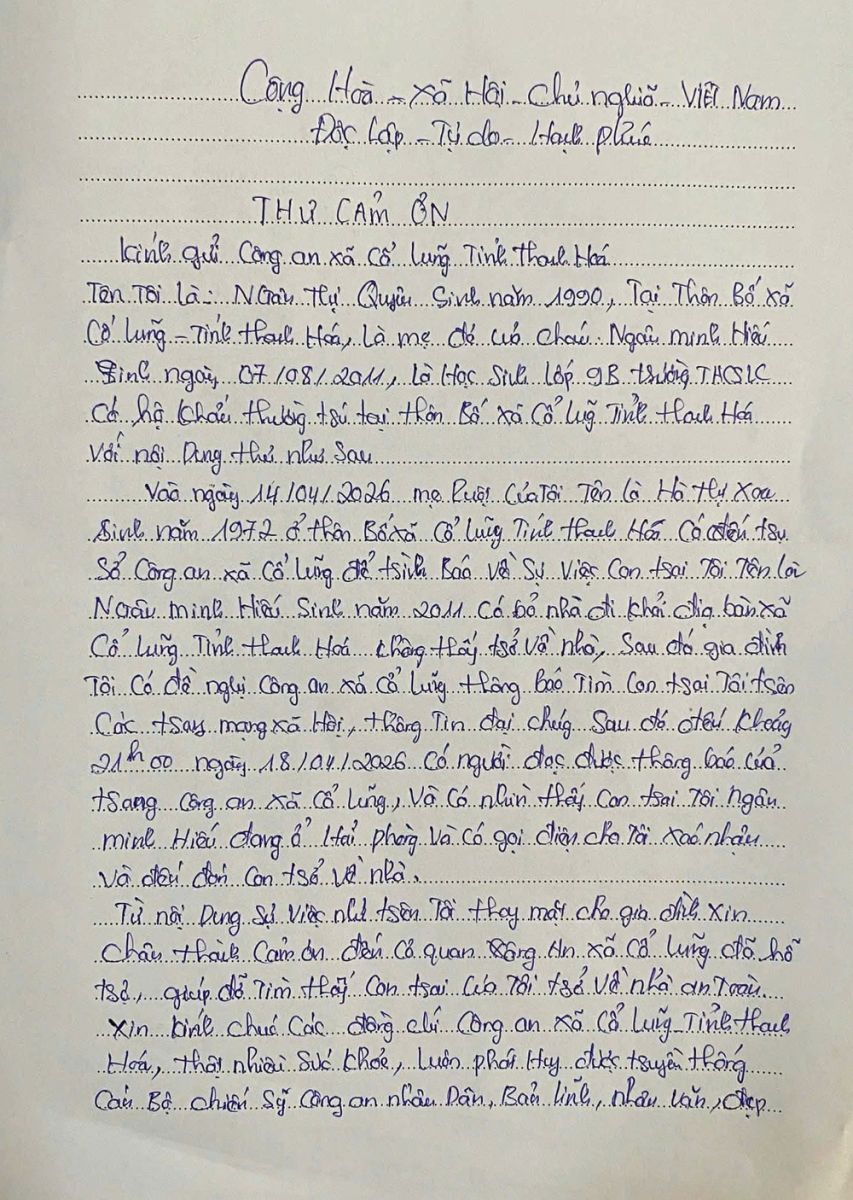 Cộng Hoà - Xã Hội - Chủ nghiã - Việt Nam
Độc lập - Tự do - Hạnh phúc
THƯ CẢM ƠN
Kính gửi Công an xã Cổ Lũng Tỉnh Thanh Hoá
Tên Tôi là: Ngân Thị Quyên Sinh năm 1990, Tại Thôn Bố xã
Cổ Lũng - Tỉnh Thanh Hoá, là mẹ đẻ của cháu: Ngân minh Hiếu
Sinh ngày 07/08/2011, là Học Sinh lớp 9B trường THCSLC
Có hộ khẩu thường trú tại thôn Bố xã Cổ Lũng Tỉnh Thanh Hoá
Với nội Dung thư như Sau
Vào ngày 14/04/2026 mẹ Ruột Của Tôi Tên là Hà Thị Xoa
Sinh năm 1972 ở thôn Bố xã Cổ Lũng Tỉnh Thanh Hoá Có đến trụ
Sở Công an xã Cổ Lũng để trình Báo Về Sự Việc Con trai Tôi Tên là
Ngân minh Hiếu Sinh năm 2011 Có bỏ nhà đi khỏi địa bàn xã
Cổ Lũng Tỉnh Thanh Hoá không thấy trở Về nhà, Sau đó gia đình
Tôi Có đề nghị Công an xã Cổ Lũng thông báo Tìm Con trai Tôi trên
Các trang mạng xã Hội, thông Tin đại chúng Sau đó đến khoảng
21h00 ngày 18/04/2026 Có người đọc được thông báo của
trang Công an xã Cổ Lũng, Và Có nhìn thấy Con trai Tôi Ngân
minh Hiếu đang ở Hải phòng Và Có gọi điện cho Tôi xác nhận
Và đến đón Con trở Về nhà.
Từ nội Dung Sự Việc như trên Tôi thay mặt cho gia đình xin
Chân thành Cảm ơn đến Cơ quan Công An xã Cổ Lũng đã hỗ
trợ, giúp đỡ Tìm thấy Con trai Của Tôi trở Về nhà an Toàn.
Xin kính chúc Các đồng chí Công an xã Cổ Lũng - Tỉnh Thanh
Hoá, thật nhiều Sức khỏe, Luôn phát Huy được truyền thống
Cán Bộ chiến Sỹ Công an nhân Dân, Bản lĩnh, nhân Văn, đẹp